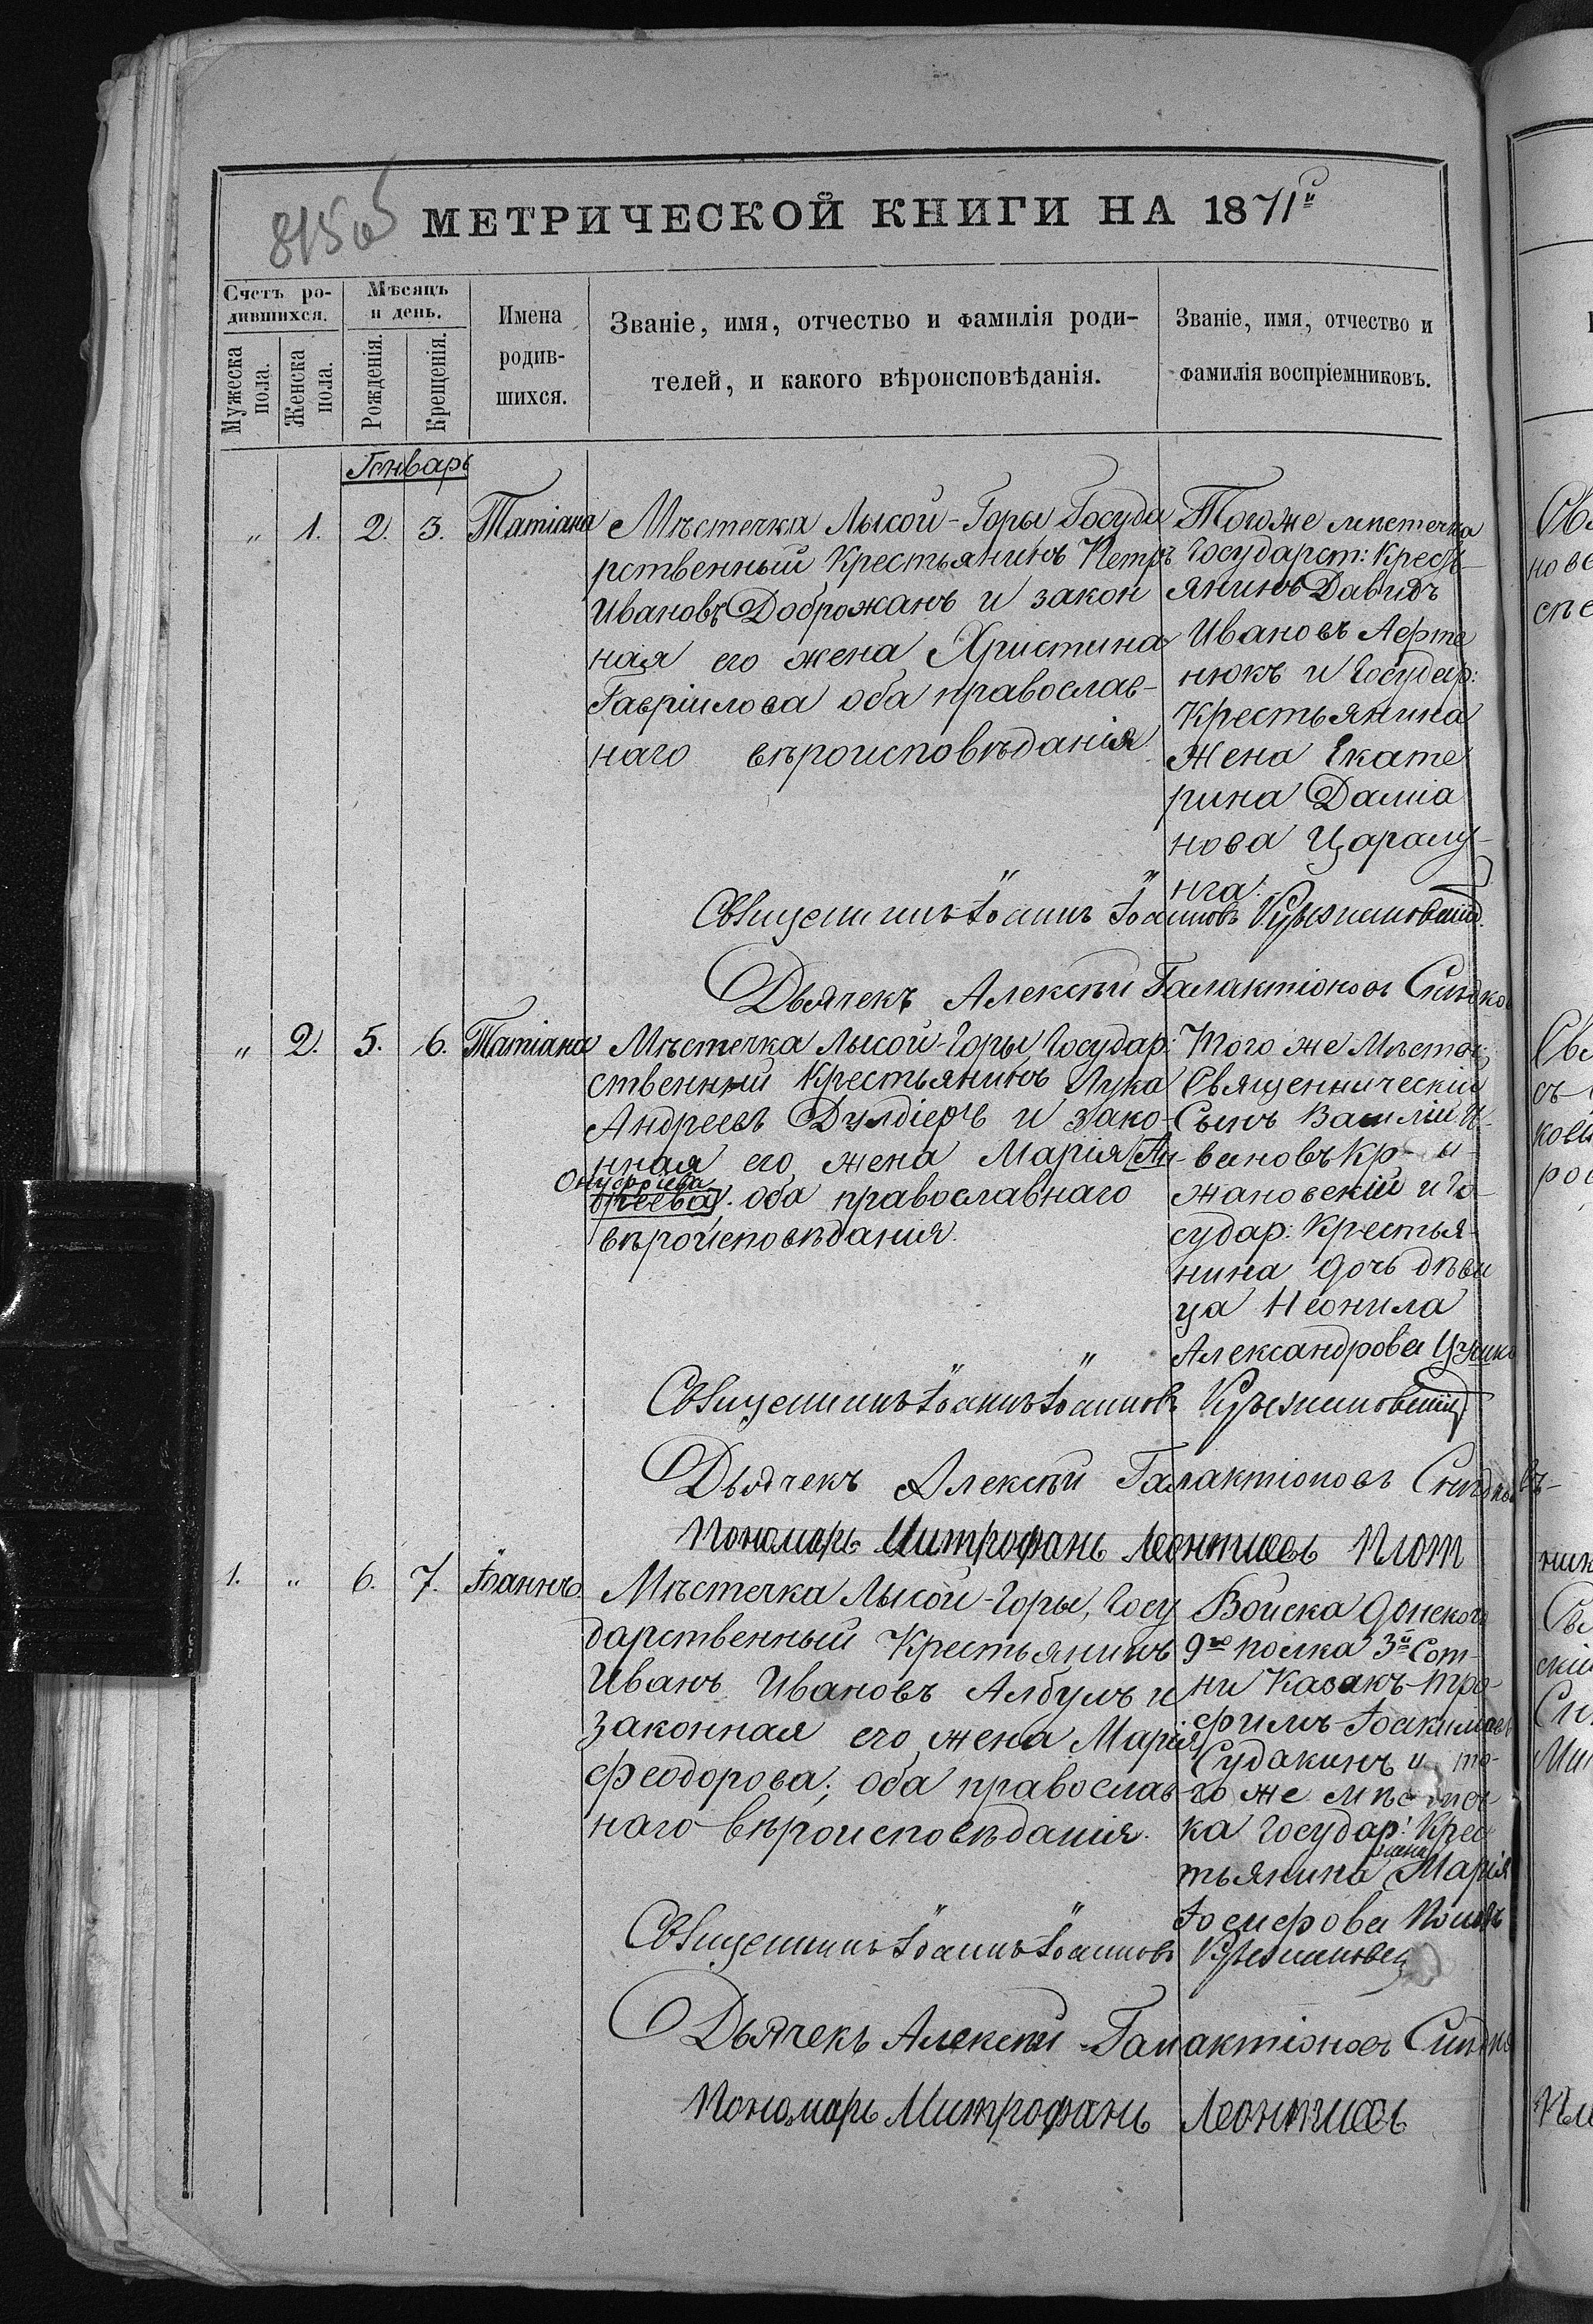 815 об
МЕТРИЧЕСКОЙ КНИГИ НА 1871й
Счетъ ро-
дившихся.
Мужеска пола.
Женска пола.
Мѣсяцъ
и день.
Рожденія.
Крещенія.
Имена
родив-
шихся.
Званіе, имя, отчество и фамилія роди-
телей, и какого вѣроисповѣданія.
Званіе, имя, отчество и
фамилія воспріемниковъ.
Генварь
" 1. 2. 3. Татіана
Мѣстечка Лысой-Горы Госуда
рственный Крестьянинъ Петръ
Ивановъ Доброжанъ и закон
ная его жена Христина
Гавріилова оба православ-
наго вѣроисповѣданія
Тогоже мѣстечка
Государст: Кресть-
янинъ Давидъ
Ивановъ Афте
нюкъ и Государ:
Крестьянина
Жена Екате
рина Даміа
нова Царалу-
нга.
Священникъ Іоаннъ Іоанновъ Крыжановскій
Дьячекъ Алексѣй Галактіоновъ
" 2. 5. 6. Татіана
Мѣстечка Лысой-Горы Государ:
ственный Крестьянинъ Лука
Андреевъ Дулдіеръ и зако-
нная его жена Марія Ан-
Онуфріева
оба православнаго
вѣроисповѣданія.
Того же Мѣстеч:
Священническій
Сынъ Василій И-
вановъ Кр-ы-
жановскій и Го-
судар: Крестья-
нина дочь дѣви
ца Неонила
Александрова
Священникъ Іоаннъ Іоанновъ Крыжановскій
Дьячекъ Алексѣй Галактіоновъ
Пономарь Митрофанъ Леонтіевъ Плот
1. " 6. 7. Іоаннъ.
Мѣстечка Лысой-Горы, Госу
дарственный Крестьянинъ
Иванъ Ивановъ Албулъ и
законная его жена Марія
Феодорова; оба православ-
наго вѣроисповѣданія.
Войска Донскаго
9го полка 3й Сот-
ни Казакъ Тро-
фимъ Іоакимовъ
Судакинъ и то-
го же мѣстеч
ка Государ: Крес
жена
тьянина Марія
Іосифова
Священникъ Іоаннъ Іоанновъ Крыжановскій
Дьячекъ Алексѣй Галактіоновъ
Пономарь Митрофанъ Леонтіевъ